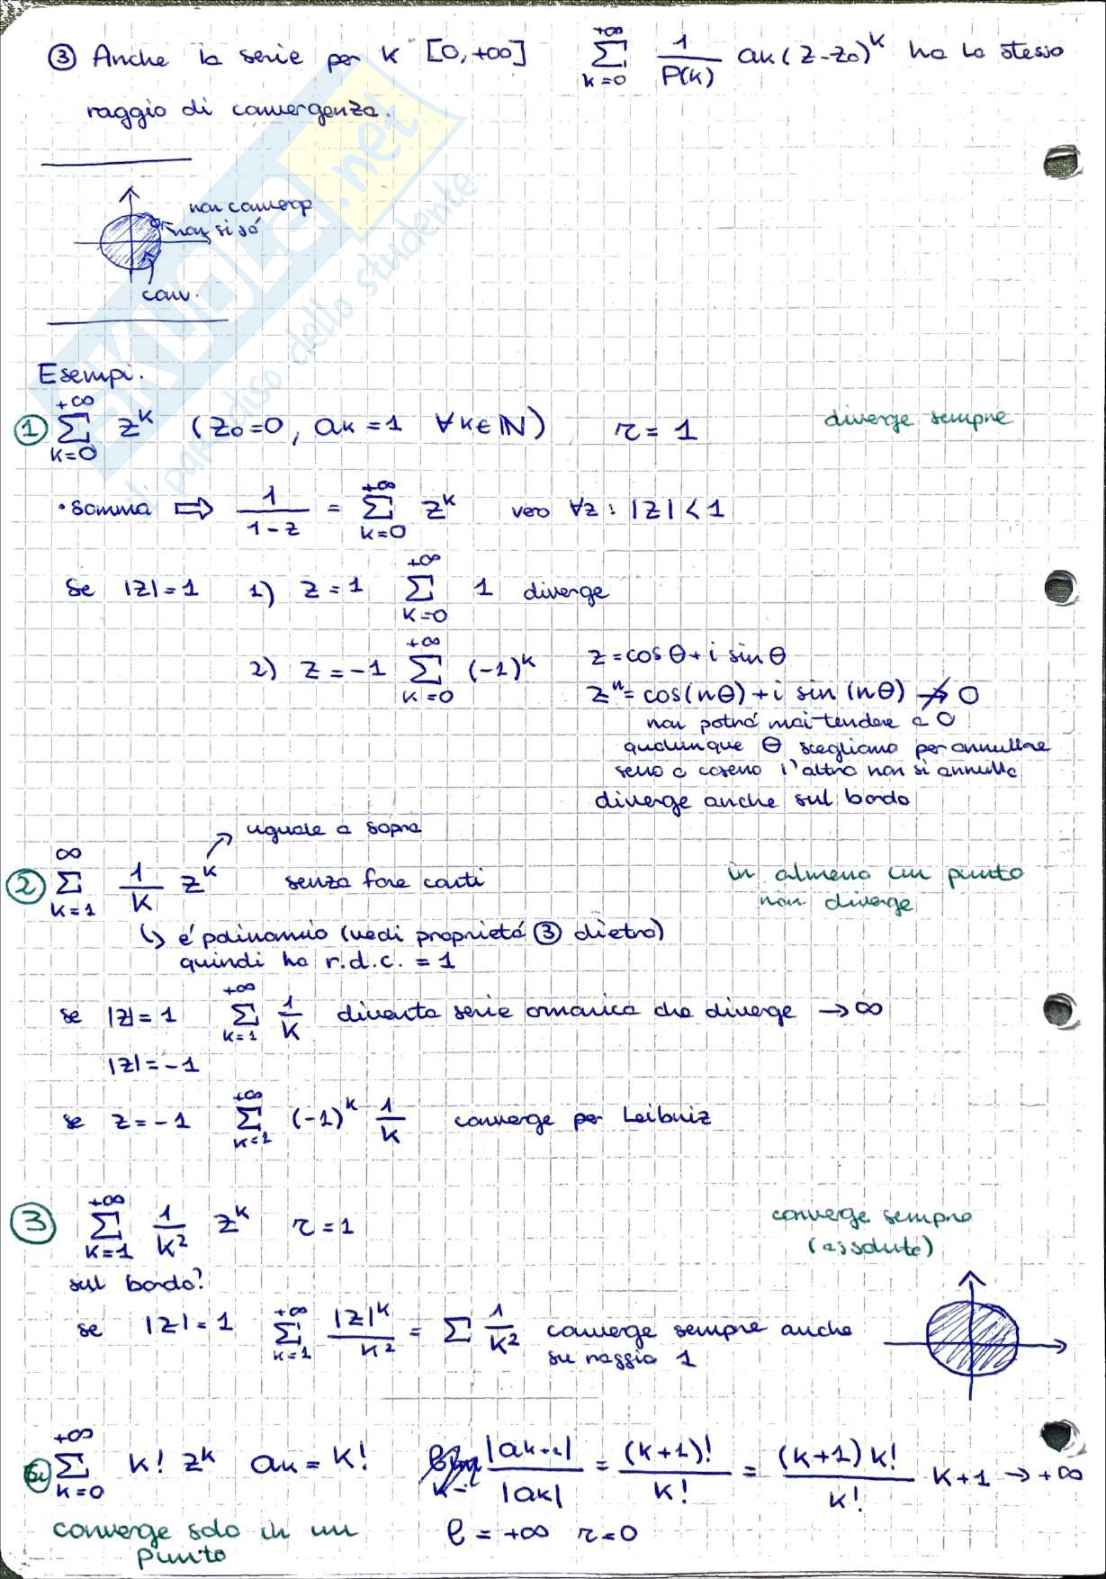 ③ Anche la serie per k [0,+∞] +∞ ∑ k=0 1/P(k) ak(z-z₀)^k ha lo stesso
raggio di convergenza.
non converge
non si só
conv.
SKUOLA.net
il paradiso dello studente
Esempi.
① +∞ ∑ k=0 z^k (z₀=0, ak=1 ∀k∈ℕ) r=1 diverge sempre
• somma ⇒ 1/(1-z) = +∞ ∑ k=0 z^k vero ∀z: |z|<1
Se |z|=1 1) z=1 +∞ ∑ k=0 1 diverge
2) z=-1 +∞ ∑ k=0 (-1)^k
z=cosθ+i sinθ
z^n=cos(nθ)+i sin(nθ) ↛ 0
non potrá mai tendere a 0
qualunque θ scegliamo per annullare
seno o coseno l'altro non si annulla
diverge anche sul bordo
uguale a sopra
② ∞ ∑ k=1 1/k z^k senza fare conti in almeno un punto
non diverge
↳ é polinomio (vedi proprietá ③ dietro)
quindi ha r.d.c. = 1
se |z|=1 +∞ ∑ k=1 1/k diventa serie armonica che diverge → ∞
|z|=-1
se z=-1 +∞ ∑ k=1 (-1)^k 1/k converge per Leibniz
③ +∞ ∑ k=1 1/k² z^k r=1 converge sempre
(assolute)
sul bordo?
se |z|=1 +∞ ∑ k=1 |z|^k/k² = ∑ 1/k² converge sempre anche
su raggio 1
+∞ ∑ k=0 k! z^k ak=k! |ak+1|/|ak| = (k+1)!/k! = (k+1)k!/k! k+1 → +∞
converge solo in un ℓ=+∞ r=0
punto